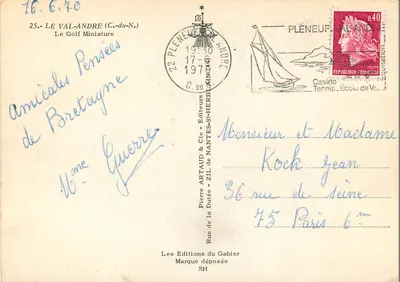 16.6.70
25.- LE VAL-ANDRÉ (C.-du-N.)
Le Golf Miniature
Amicales Pensées
de Bretagne
Mme Guerre
22 PLENEUF VAL ANDRE
17-6
C. DU N.
PLÉNEUF
Casino
Tennis
0,40
REPUBLIQUE FRANÇAISE
Pierre ARTAUD & Cie - Editeurs
Rue de la Dutée - ZIL de NANTES-St-HERBLAIN
Monsieur et Madame
Kock Jean
36 rue de seine
75 Paris 6me
Les Editions du Gabier
Marque déposée
SH